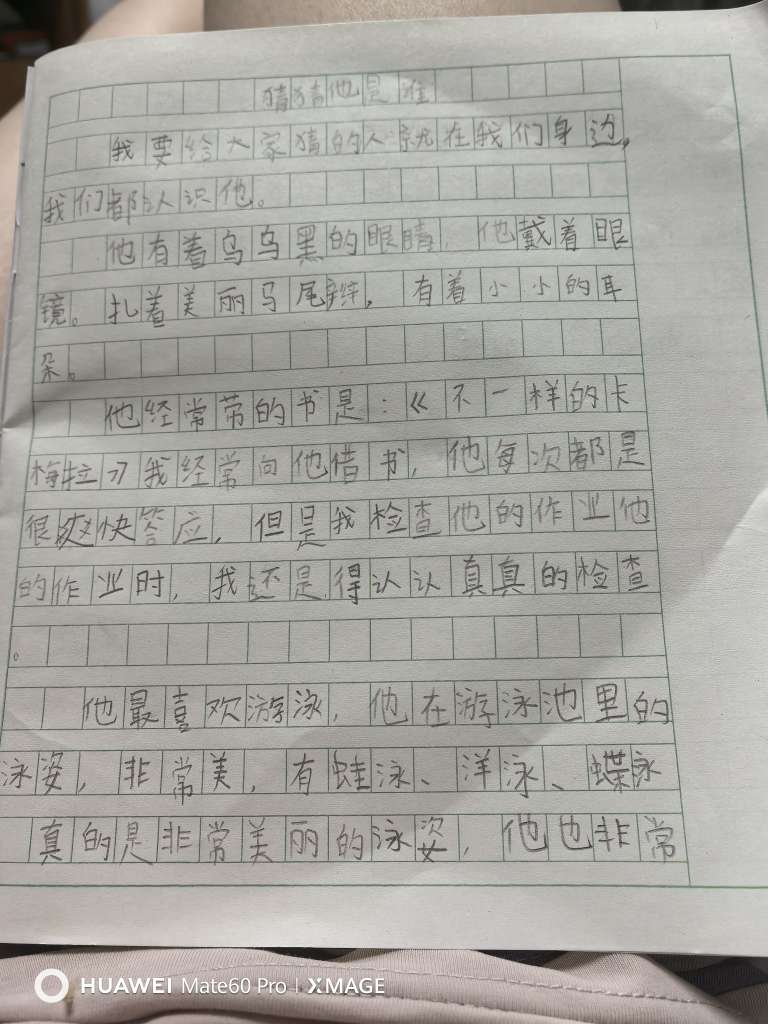 猜猜他是谁
我要给大家猜的人就在我们身边,
我们都认识他。
他有着乌乌黑的眼睛,他戴着眼
镜。扎着美丽马尾辫,有着小小的耳
朵。
他经常带的书是:《不一样的卡
梅拉》我经常向他借书,他每次都是
很爽快答应,但是我检查他的作业他
的作业时,我还是得认认真真的检查
。
他最喜欢游泳,他在游泳池里的
泳姿,非常美,有蛙泳、洋泳、蝶泳
真的是非常美丽的泳姿,他也非常
HUAWEI Mate60 Pro | XMAGE